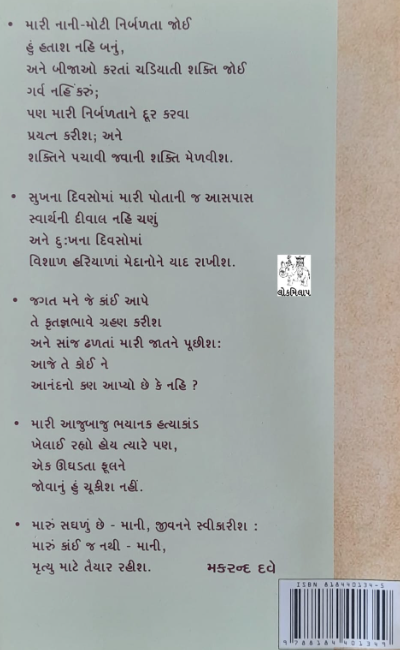 • મારી નાની-મોટી નિર્બળતા જોઈ
હું હતાશ નહિ બનું,
અને બીજાઓ કરતાં ચડિયાતી શક્તિ જોઈ
ગર્વ નહિં કરું;
પણ મારી નિર્બળતાને દૂર કરવા
પ્રયત્ન કરીશ; અને
શક્તિને પચાવી જવાની શક્તિ મેળવીશ.
• સુખના દિવસોમાં મારી પોતાની જ આસપાસ
સ્વાર્થની દીવાલ નહિ ચણું
અને દુઃખના દિવસોમાં
વિશાળ હરિયાળાં મેદાનોને યાદ રાખીશ.
લોકમિલાપ
• જગત મને જે કાંઈ આપે
તે કૃતજ્ઞભાવે ગ્રહણ કરીશ
અને સાંજ ઢળતાં મારી જાતને પૂછીશ:
આજે તે કોઈ ને
આનંદનો કણ આપ્યો છે કે નહિ ?
• મારી આજુબાજુ ભયાનક હત્યાકાંડ
ખેલાઈ રહ્યો હોય ત્યારે પણ,
એક ઊઘડતા ફૂલને
જોવાનું હું ચૂકીશ નહીં.
• મારું સઘળું છે - માની, જીવનને સ્વીકારીશ :
મારું કાંઈ જ નથી - માની,
મૃત્યુ માટે તૈયાર રહીશ.
મકરન્દ દવે
ISBN 818440134-5
9 788184 401349